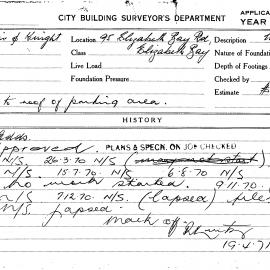 CITY BUILDING SURVEYOR'S DEPARTMENT
APPLICA
YEAR
& Knight Location 95 Elizabeth Bay Rd Description
Class Elizabeth Bay Nature of Foundation
Live Load Depth of Footings
Foundation Pressure Checked by
Estimate
to roof of parking area.
HISTORY
Adds.
Approved PLANS & SPECN. ON JOB CHECKED
N/S. 26.3.70 N/S (may not start)
N/S 15.7.70 N/S 6.8.70 N/S
no work started. 9.11.70
N/S 7.12.70 N/S (lapsed) files
N/S. lapsed.
mark off
19.4.71